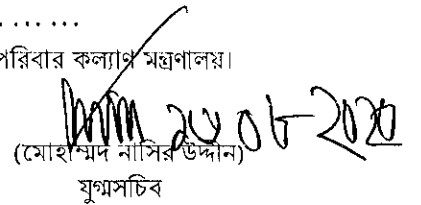 ........
পরিবার কল্যাণ মন্ত্রণালয়।
২৩ ০৮-২০২০
(মোহাম্মদ নাসির উদ্দীন)
যুগ্মসচিব